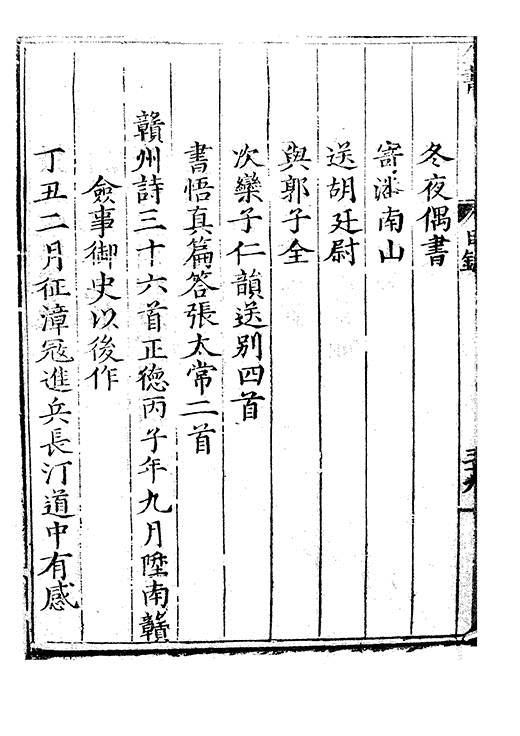 冬夜偶書
寄潘南山
送胡廷尉
與郭子全
次欒子仁韻送別四首
書悟真篇答張太常二首
贛州詩三十六首正德丙子年九月陞南贛
僉事御史以後作
丁丑二月征漳冦進兵長汀道中有感
目錄